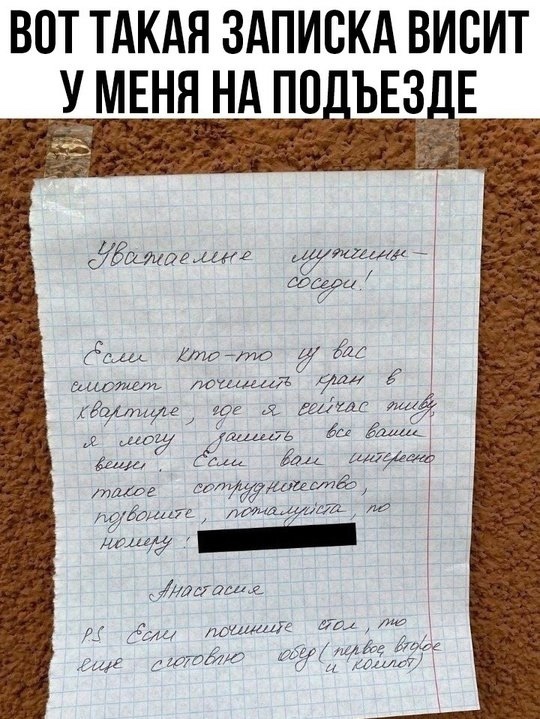 ВОТ ТАКАЯ ЗАПИСКА ВИСИТ
У МЕНЯ НА ПОДЪЕЗДЕ
Уважаемые мужчины-
соседи!
Если кто-то из вас
сможет починить кран в
квартире, где я сейчас живу,
я могу зашить все ваши
вещи. Если вам интересно
такое сотрудничество,
позвоните, пожалуйста, по
номеру:
Анастасия
PS Если почините стол, то
еще сготовлю обед (первое, второе
и компот)